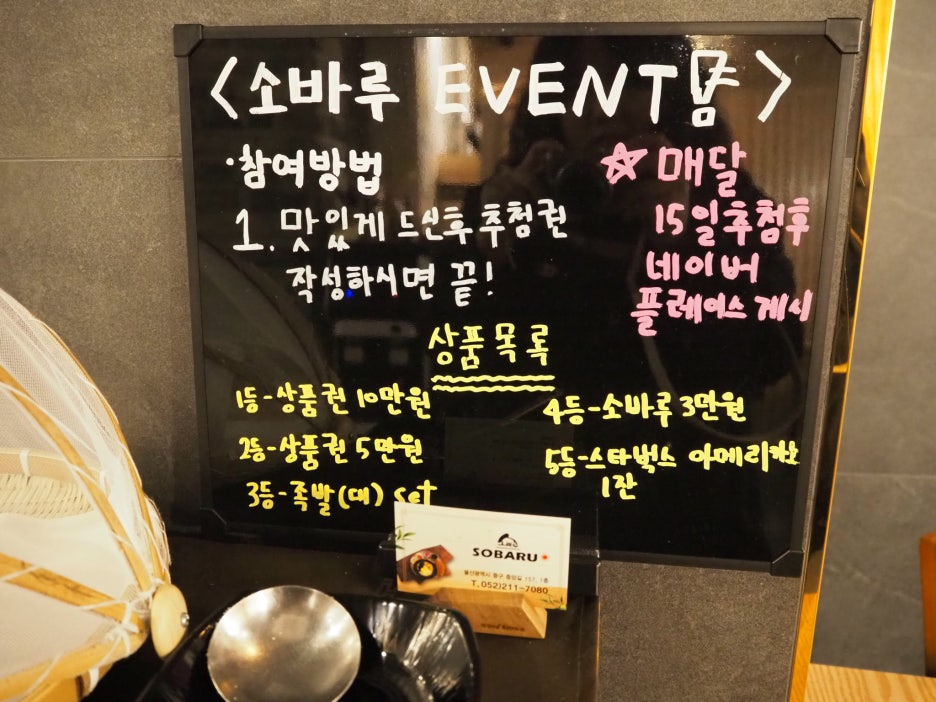 <소바루 EVENT>
·참여방법
1. 맛있게 드신후 추첨권
작성하시면 끝!
☆ 매달
15일추첨후
네이버
플레이스 게시
상품목록
1등-상품권 10만원
2등-상품권 5만원
3등-족발(대) set
4등-소바루 3만원
5등-스타벅스 아메리카노
1잔
SOBARU
울산광역시 중구 중앙길 157, 1층
T.052)211-7080